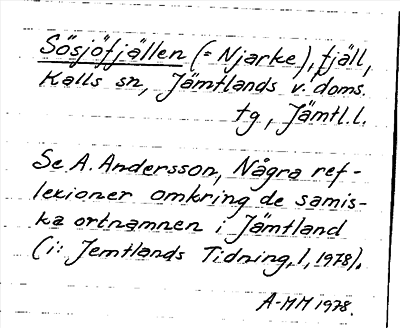 Sösjöfjällen (= Njarke), fjäll,
Kalls sn, Jämtlands v. doms.
tg, Jämtl.l.
Se A. Andersson, Några ref-
lexioner omkring de samis-
ka ortnamnen i Jämtland
(i: Jemtlands Tidning, 1, 1978).
A-MM 1978.